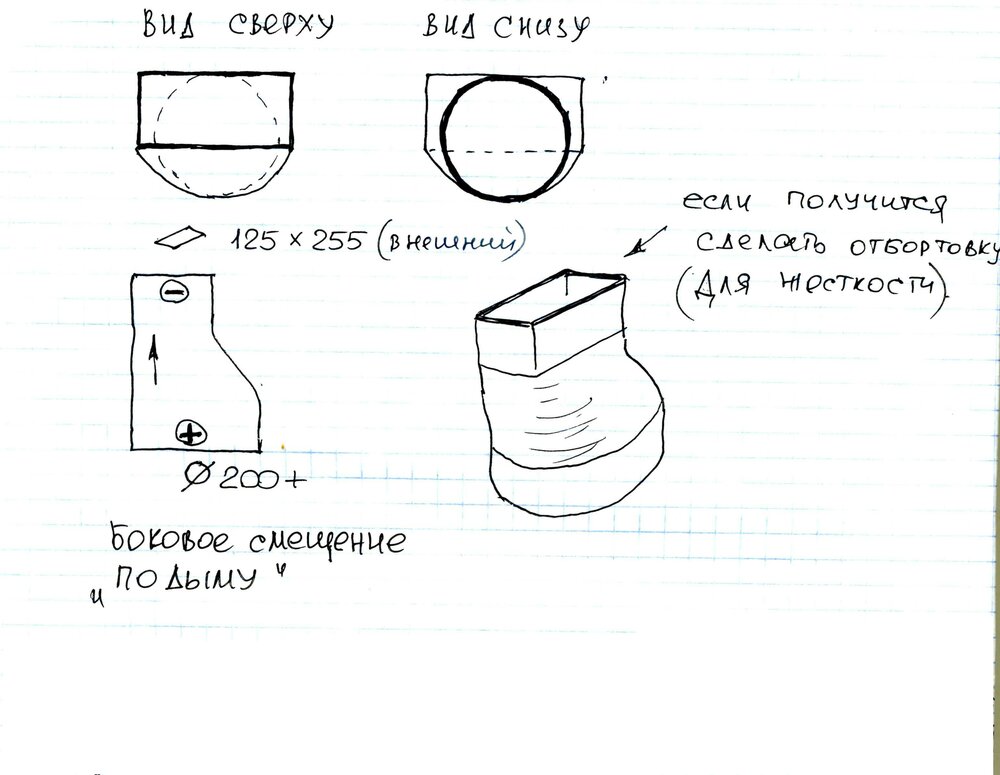 ВИД СВЕРХУ
ВИД СНИЗУ
125 × 255 (внешний)
если получится
сделать отбортовку
(Для жесткости)
−
+
Ø 200+
Боковое смещение
„ПО ДЫМУ“